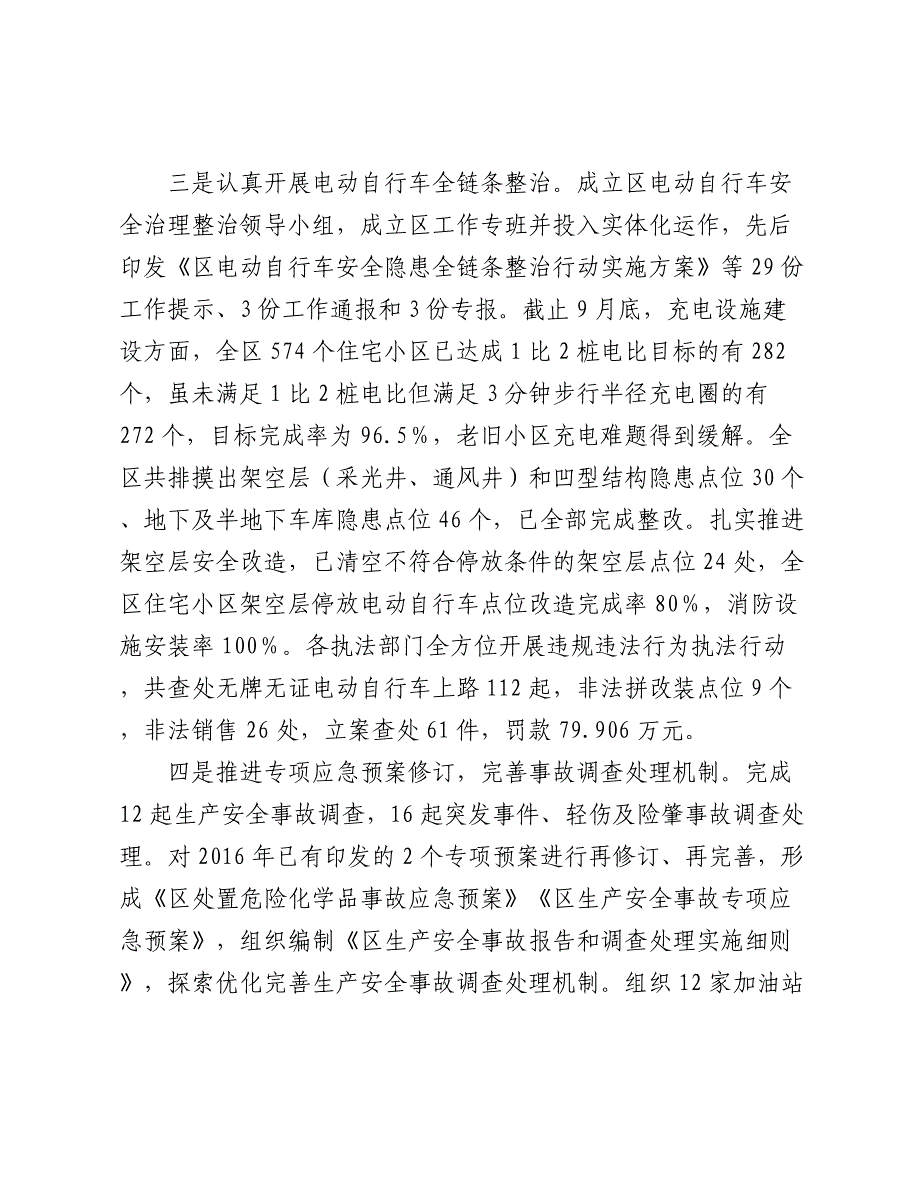 三是认真开展电动自行车全链条整治。成立区电动自行车安
全治理整治领导小组，成立区工作专班并投入实体化运作，先后
印发《区电动自行车安全隐患全链条整治行动实施方案》等 29 份
工作提示、3 份工作通报和 3 份专报。截止 9 月底，充电设施建
设方面，全区 574 个住宅小区已达成 1 比 2 桩电比目标的有 282
个，虽未满足 1 比 2 桩电比但满足 3 分钟步行半径充电圈的有
272 个，目标完成率为 96.5%，老旧小区充电难题得到缓解。全
区共排摸出架空层（采光井、通风井）和凹型结构隐患点位 30 个
、地下及半地下车库隐患点位 46 个，已全部完成整改。扎实推进
架空层安全改造，已清空不符合停放条件的架空层点位 24 处，全
区住宅小区架空层停放电动自行车点位改造完成率 80%，消防设
施安装率 100%。各执法部门全方位开展违规违法行为执法行动
，共查处无牌无证电动自行车上路 112 起，非法拼改装点位 9 个
，非法销售 26 处，立案查处 61 件，罚款 79.906 万元。
四是推进专项应急预案修订，完善事故调查处理机制。完成
12 起生产安全事故调查，16 起突发事件、轻伤及险肇事故调查处
理。对 2016 年已有印发的 2 个专项预案进行再修订、再完善，形
成《区处置危险化学品事故应急预案》《区生产安全事故专项应
急预案》，组织编制《区生产安全事故报告和调查处理实施细则
》，探索优化完善生产安全事故调查处理机制。组织 12 家加油站